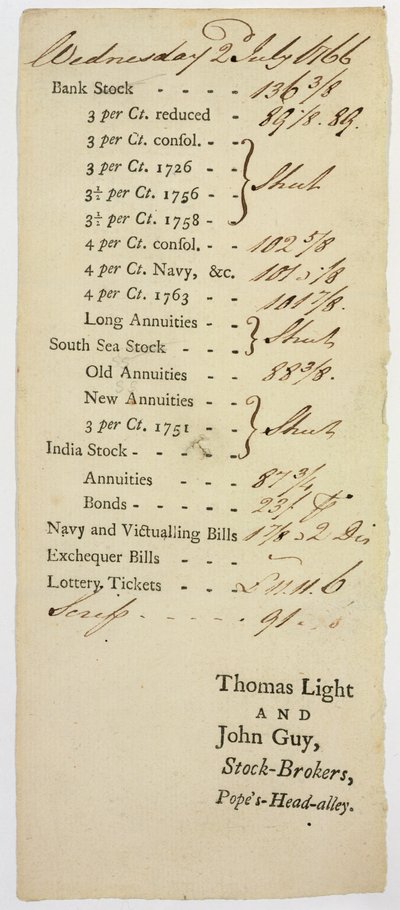 Wednesday 2d July 1766
Bank Stock - - - - 136 3/8
3 per Ct. reduced - 89 1/8. 89.
3 per Ct. conſol. - -
3 per Ct. 1726 - -
3½ per Ct. 1756 - - } Shut
3½ per Ct. 1758 -
4 per Ct. conſol. - - 102 5/8
4 per Ct. Navy, &c. 101 1/8
4 per Ct. 1763 - - 101 7/8.
Long Annuities - -
South Sea Stock - - - } Shut
Old Annuities - - 88 3/8.
New Annuities - -
3 per Ct. 1751 - - } Shut
India Stock - - - - -
Annuities - - - 87 3/4
Bonds - - - - - 23/
Navy and Victualling Bills 1 7/8 a 2 Dis
Exchequer Bills - - -
Lottery Tickets - - - £11.11.6
Scrip - - - - - 91
Thomas Light
AND
John Guy,
Stock-Brokers,
Pope's-Head-alley.